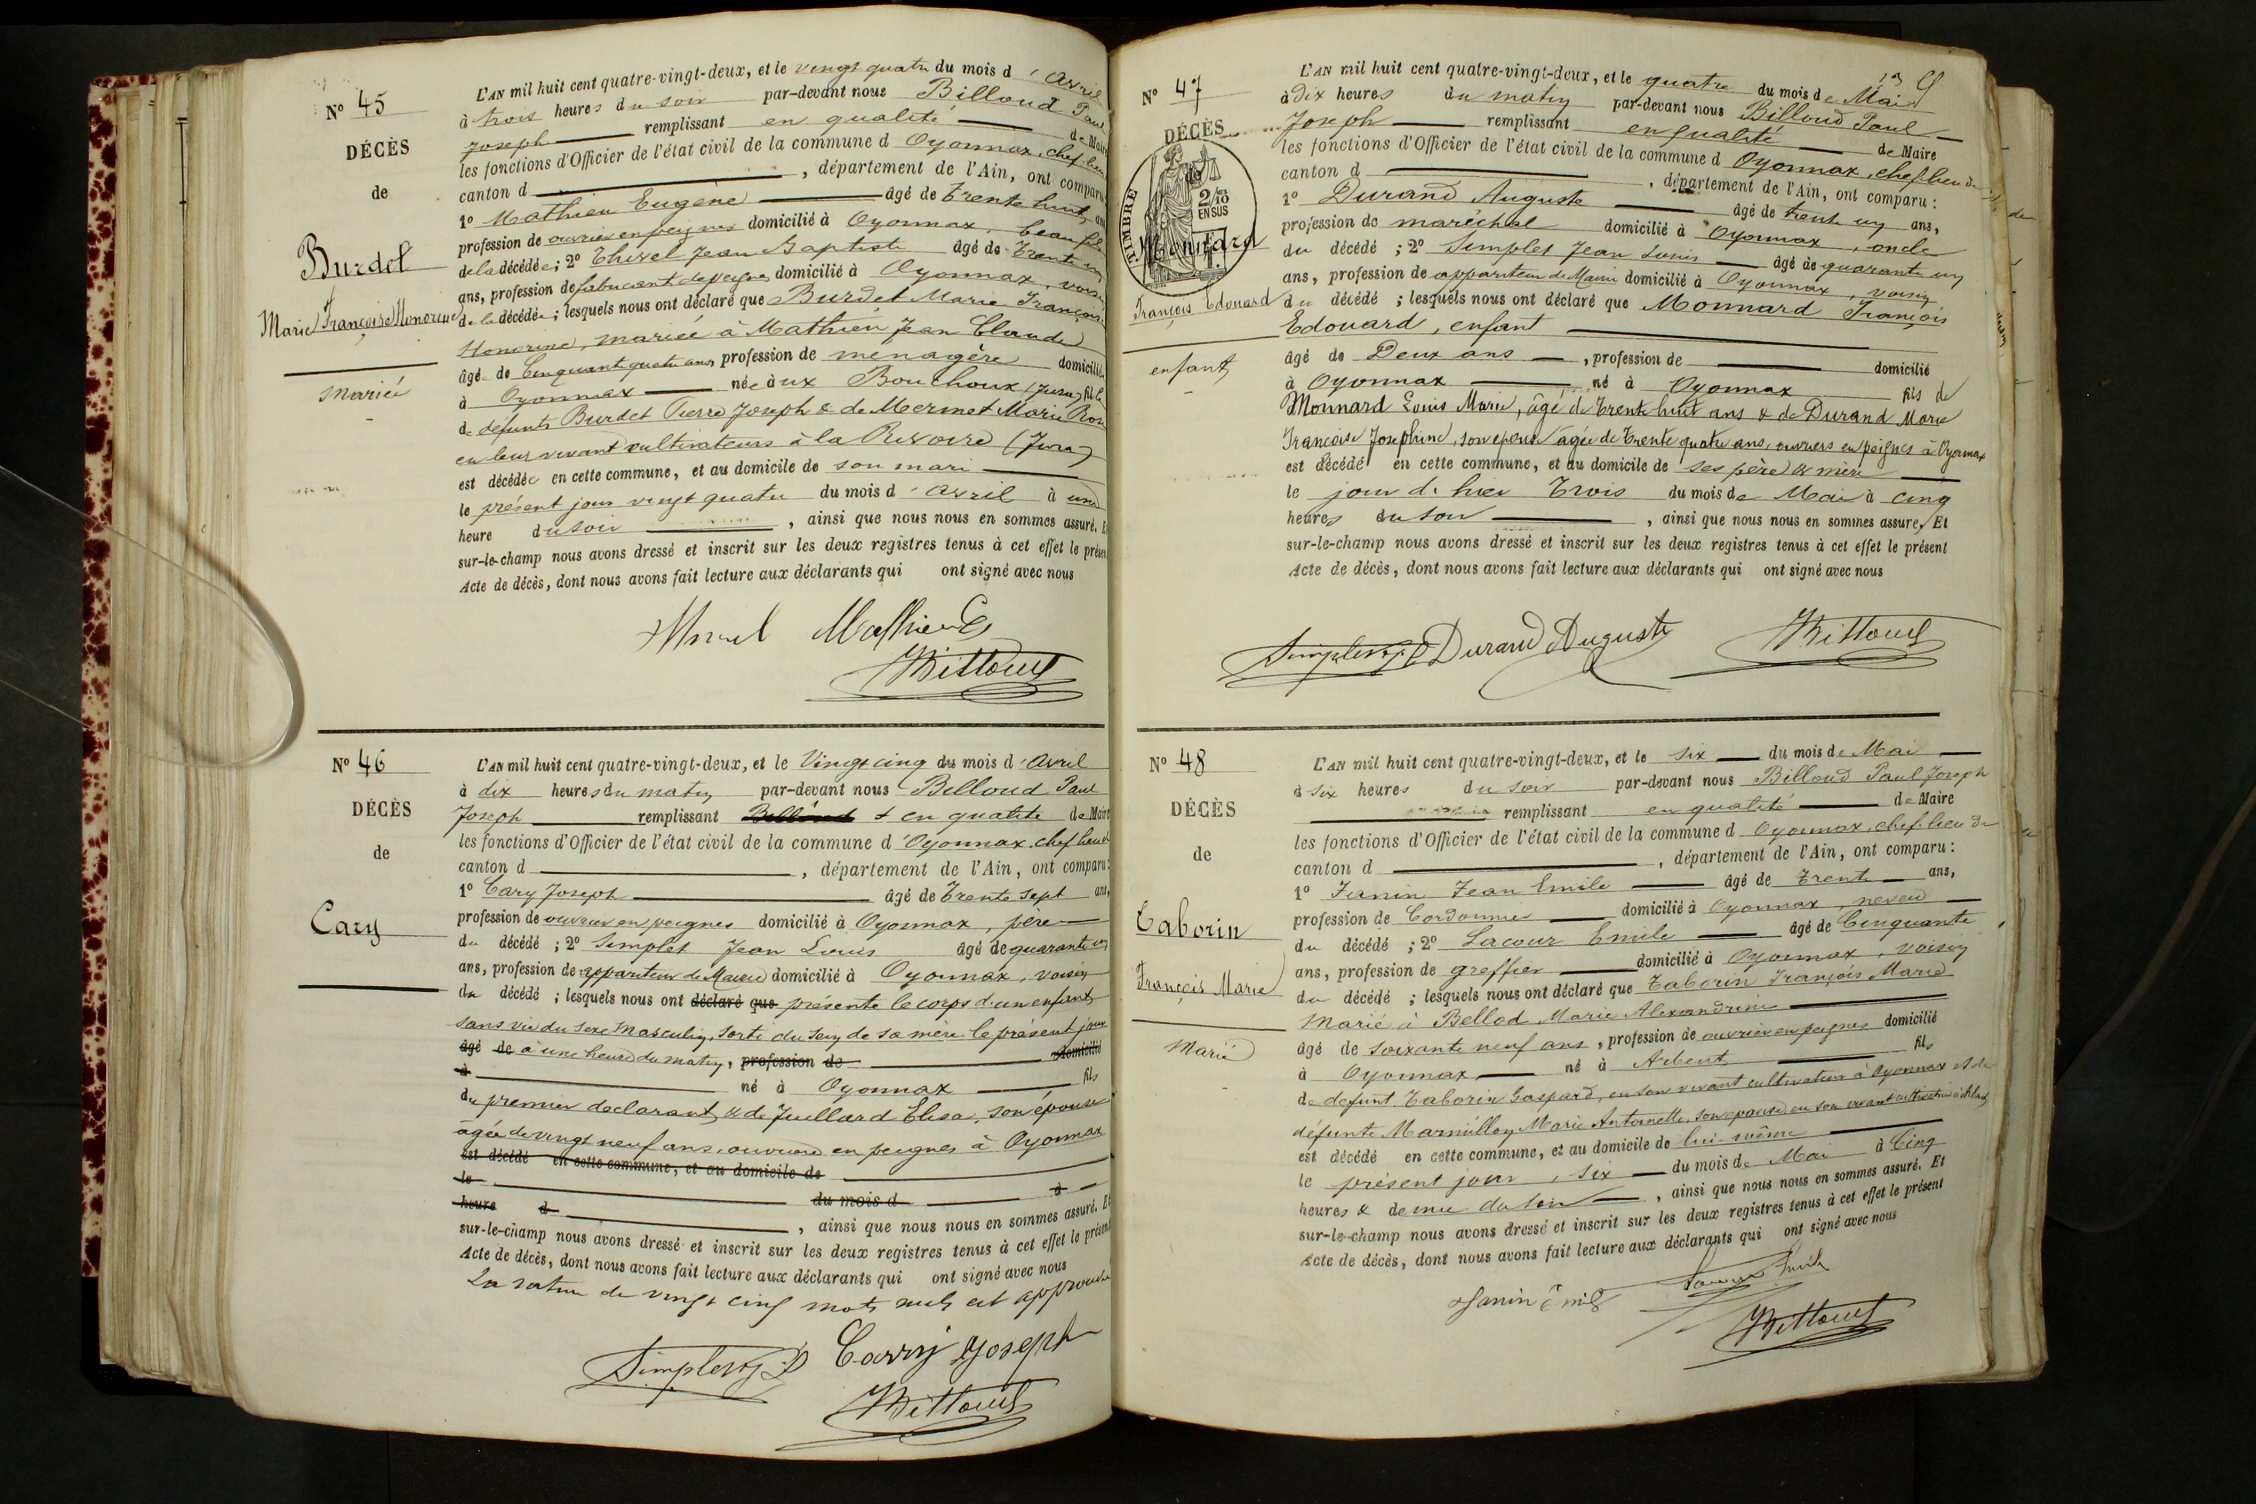 N° 45
DÉCÈS
de
Burdet
Marie Françoise Honorine
mariée
L'AN mil huit cent quatre-vingt-deux, et le vingt quatre du mois d'avril
à trois heures du soir par-devant nous Billoud Paul
Joseph remplissant en qualité de Maire
les fonctions d'Officier de l'état civil de la commune d'Oyonnax, chef lieu
canton d , département de l'Ain, ont comparu
1° Mathieu Eugène âgé de trente huit ans
profession de ouvrier en peignes domicilié à Oyonnax, beau fils
de la décédée; 2° Chivel Jean Baptiste âgé de trente un
ans, profession de fabricant de peignes domicilié à Oyonnax, voisin
de la décédée; lesquels nous ont déclaré que Burdet Marie Françoise
Honorine, mariée à Mathieu Jean Claude
âgé de Cinquante quatre ans, profession de ménagère domiciliée
à Oyonnax née à ux Bouchoux (Jura) fille
de défunts Burdet Pierre Joseph & de Mermet Marie Rose
en leur vivant cultivateurs à la Rixoire (Jura)
est décédée en cette commune, et au domicile de son mari
le présent jour vingt quatre du mois d'avril à une
heure du soir , ainsi que nous nous en sommes assuré. Et
sur-le-champ nous avons dressé et inscrit sur les deux registres tenus à cet effet le présent
Acte de décès, dont nous avons fait lecture aux déclarants qui ont signé avec nous
Mathieu E
PBilloud
N° 46
DÉCÈS
de
Cary
L'AN mil huit cent quatre-vingt-deux, et le Vingt cinq du mois d'avril
à dix heures du matin par-devant nous Billoud Paul
Joseph remplissant Billoud + en qualité de Maire
les fonctions d'Officier de l'état civil de la commune d'Oyonnax, chef lieu de
canton d , département de l'Ain, ont comparu:
1° Cary Joseph âgé de trente sept ans,
profession de ouvrier en peignes domicilié à Oyonnax, père
du décédé; 2° Simplet Jean Louis âgé de quarante un
ans, profession de appariteur de Mairie domicilié à Oyonnax, voisin
du décédé; lesquels nous ont déclaré que présenté le corps d'un enfant
sans vie du sexe masculin, sorti du sein de sa mère le présent jour
âgé de à une heure du matin, profession de domicilié
à né à Oyonnax fils
du premier déclarant & de Juillard Elisa, son épouse
âgée de vingt neuf ans, ouvrière en peignes à Oyonnax
est décédé en cette commune, et au domicile de
le du mois d à
heure d , ainsi que nous nous en sommes assuré. Et
sur-le-champ nous avons dressé et inscrit sur les deux registres tenus à cet effet le présent
Acte de décès, dont nous avons fait lecture aux déclarants qui ont signé avec nous
La rature de vingt cinq mots nuls est approuvée
Simplet J. L Carry Joseph
PBilloud
N° 47
DÉCÈS
TIMBRE
2/10
EN SUS
Monnard
François Edouard
enfant
L'AN mil huit cent quatre-vingt-deux, et le quatre du mois de Mai
à dix heures du matin par-devant nous Billoud Paul
Joseph remplissant en qualité de Maire
les fonctions d'Officier de l'état civil de la commune d Oyonnax, chef lieu du
canton d , département de l'Ain, ont comparu:
1° Durand Auguste âgé de trent un ans,
profession de maréchal domicilié à Oyonnax, oncle
du décédé; 2° Simplet Jean Louis âgé de quarante un
ans, profession de appariteur de Mairie domicilié à Oyonnax, voisin
du décédé; lesquels nous ont déclaré que Monnard François
Edouard, enfant
âgé de Deux ans , profession de domicilié
à Oyonnax né à Oyonnax fils de
Monnard Louis Marie, âgé de trente huit ans & de Durand Marie
Françoise Joséphine, son épouse âgée de trente quatre ans, ouvriers en peignes à Oyonnax
est décédé en cette commune, et au domicile de ses père & mère
le jour d'hier trois du mois de Mai à cinq
heures du soir , ainsi que nous nous en sommes assuré, Et
sur-le-champ nous avons dressé et inscrit sur les deux registres tenus à cet effet le présent
Acte de décès, dont nous avons fait lecture aux déclarants qui ont signé avec nous
Simplet J. L Durand Auguste PBilloud
N° 48
DÉCÈS
de
Taborin
François Marie
Marié
L'AN mil huit cent quatre-vingt-deux, et le six du mois de Mai
à six heures du soir par-devant nous Billoud Paul Joseph
remplissant en qualité de Maire
les fonctions d'Officier de l'état civil de la commune d Oyonnax, chef lieu de
canton d , département de l'Ain, ont comparu:
1° Janin Jean Emile âgé de trente ans,
profession de Cordonnier domicilié à Oyonnax, neveu
du décédé; 2° Lacour Emile âgé de Cinquante
ans, profession de greffier domicilié à Oyonnax, voisin
du décédé; lesquels nous ont déclaré que Taborin François Marie
Marié à Bellod Marie Alexandrine
âgé de soixante neuf ans, profession de ouvrier en peignes domicilié
à Oyonnax né à Arbent fils
de défunt Taborin Gaspard, en son vivant cultivateur à Oyonnax et de
défunte Marmillon Marie Antoinette, son épouse en son vivant cultivatrice
est décédé en cette commune, et au domicile de lui-même
le présent jour, six du mois de Mai à Cinq
heures & demie du soir , ainsi que nous nous en sommes assuré. Et
sur-le-champ nous avons dressé et inscrit sur les deux registres tenus à cet effet le présent
Acte de décès, dont nous avons fait lecture aux déclarants qui ont signé avec nous
Janin Emile Lacour Emile
PBilloud